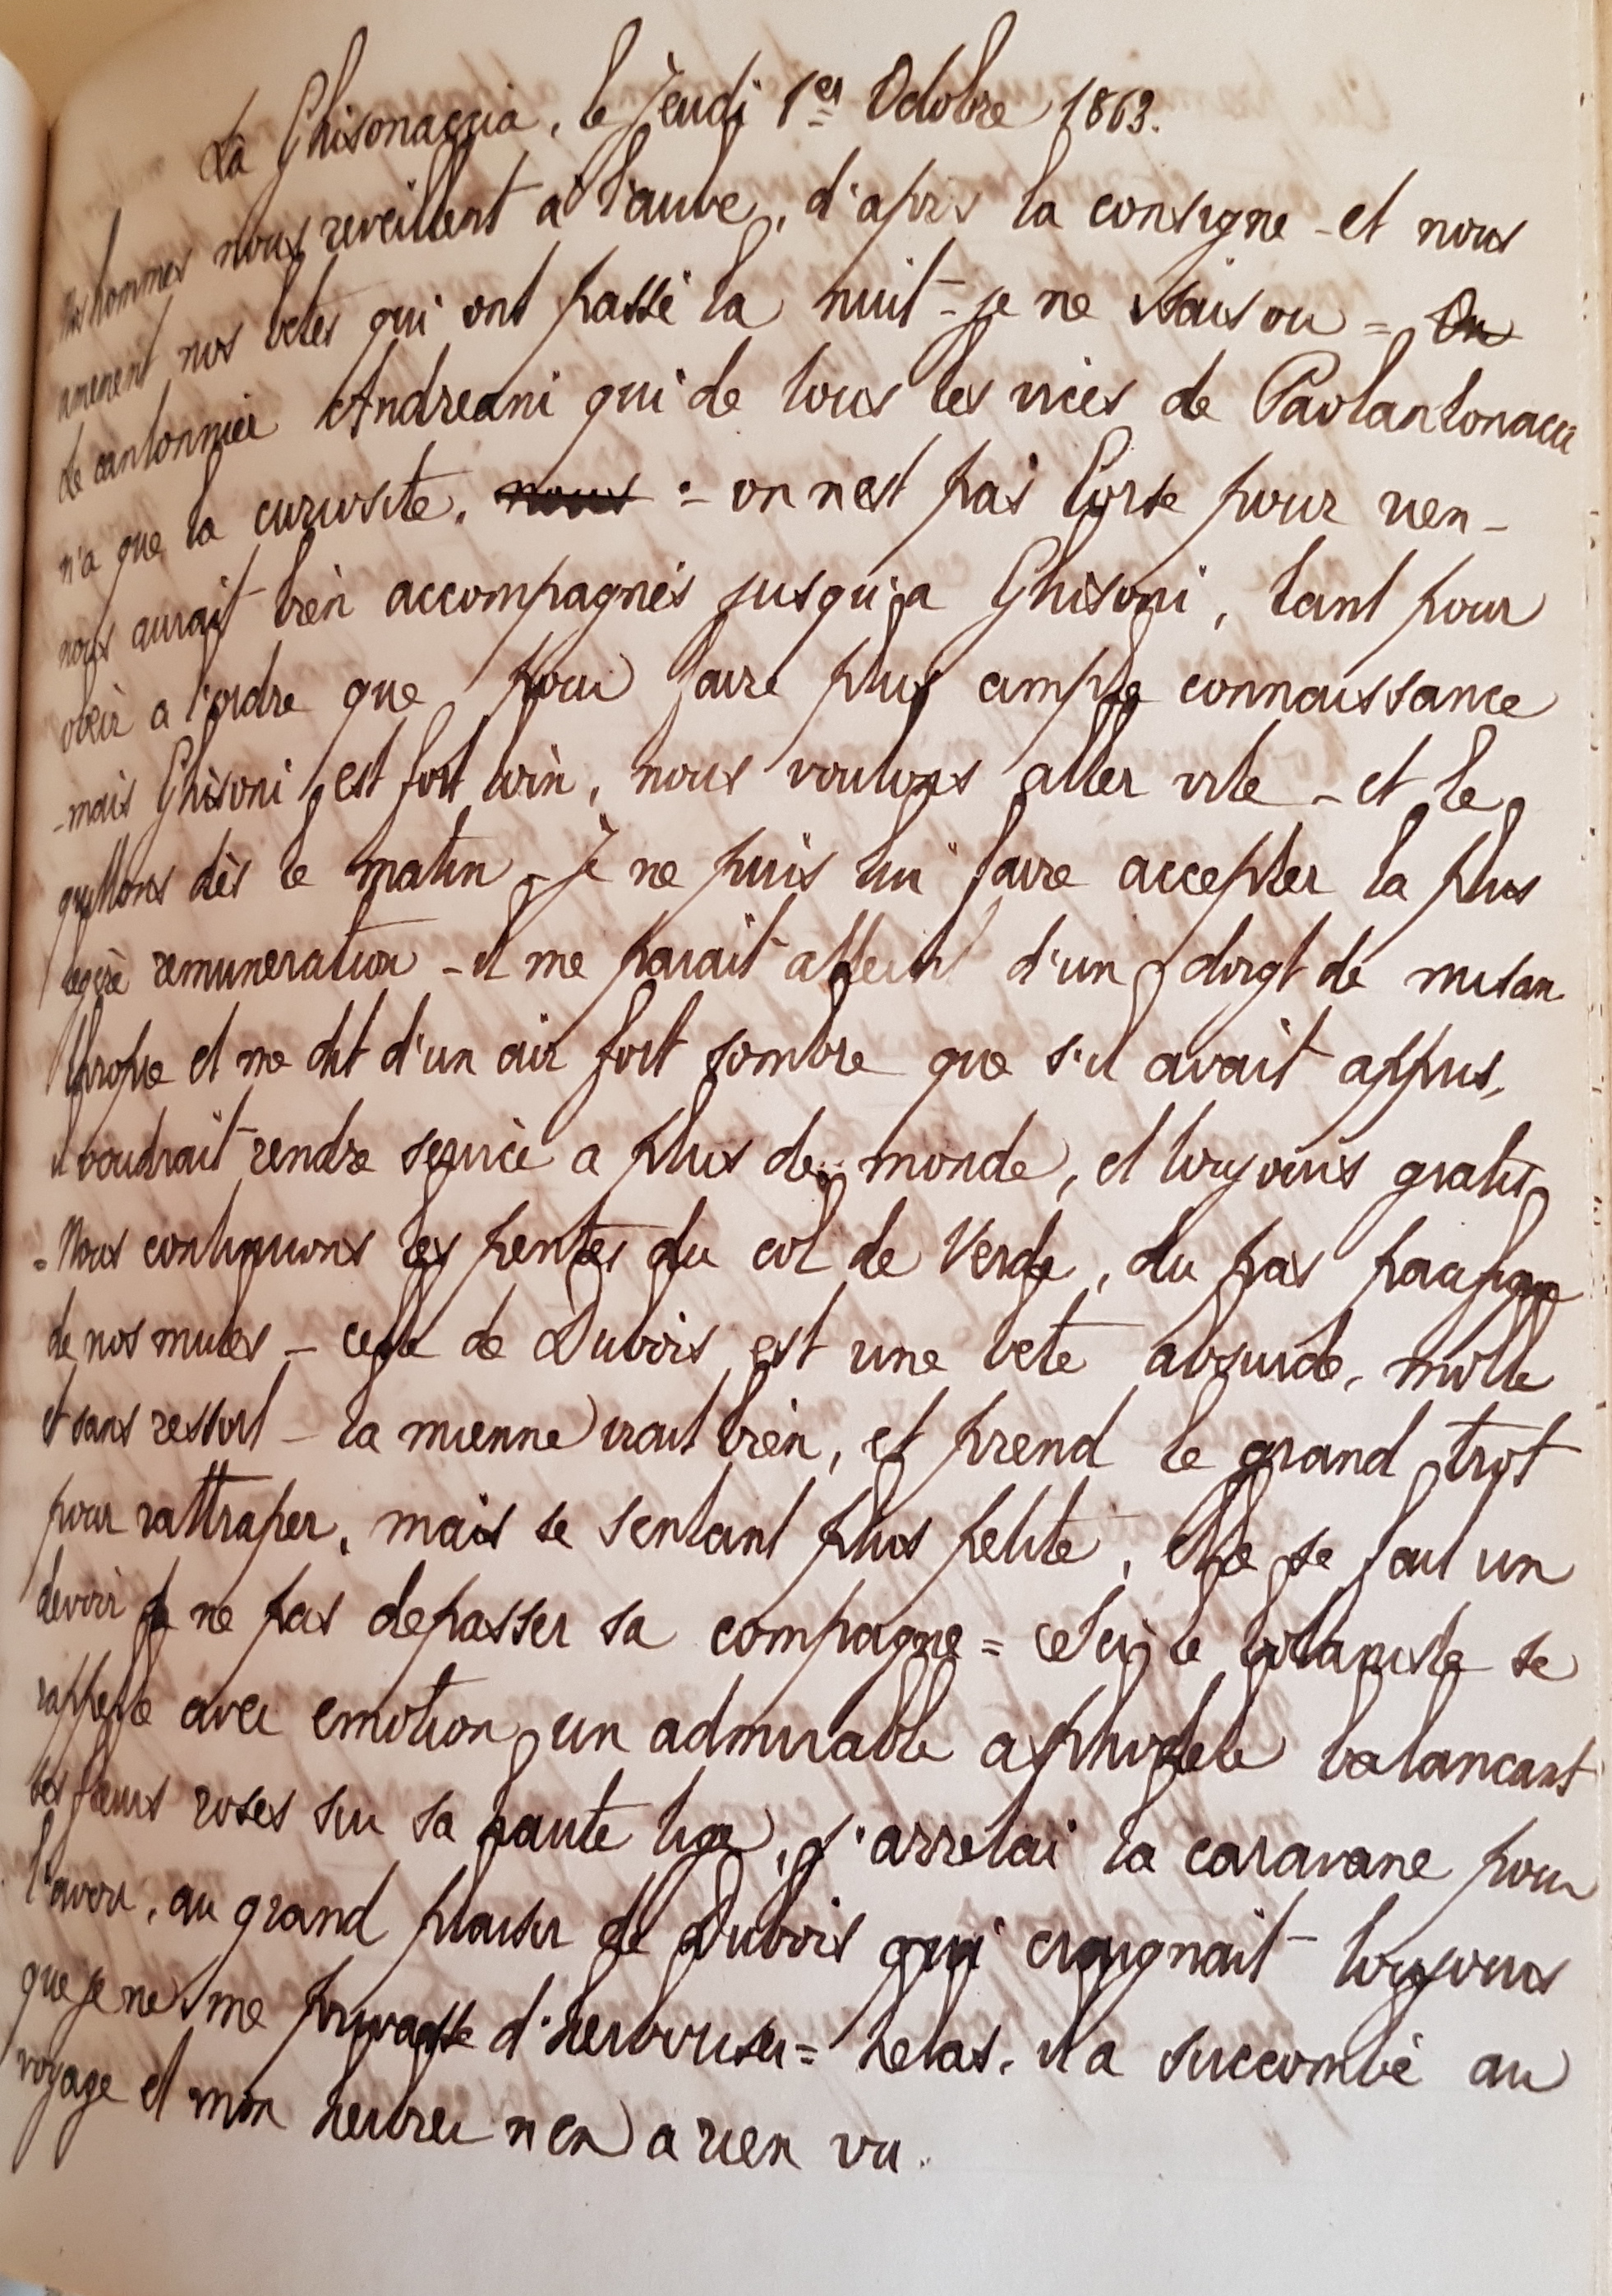 La Ghisonaccia, le Jeudi 1er Octobre 1863.
Nos hommes nous reveillent à l'aube, d'après la consigne - et nous
amenent nos betes qui ont passé la nuit - je ne sais ou =
Le cantonnier Andreani qui de tous les vices de Paolantonacci
n'a que la curiosite, nous :- on n'est pas Corse pour rien -
nous aurait bien accompagnés jusqu'a Ghisoni, tant pour
obeir a l'ordre que pour faire plus ample connaissance
- mais Ghisoni est fort loin, nous voulons aller vite - et le
quittons dès le matin - Je ne puis lui faire accepter la plus
legere remuneration - il me parait atteint d'un doigt de misan
thropie et me dit d'un air fort sombre que s'il avait appris,
il voudrait rendre service a plus de monde, et toujours gratis
= Nous continuons les pentes du col de Verde, du pas pacifique
de nos mules - celle de Dubois est une bete absurde, molle
et sans ressort - la mienne irait bien, et prend le grand trot
pour rattraper, mais se sentant plus petite, elle se fait un
devoir de ne pas depasser sa compagne = Ici le botaniste se
rappelle avec emotion un admirable asphodele balancant
ses fleurs roses sur sa haute tige, j'arretai la caravane pour
l'avoir, au grand plaisir de Dubois qui craignait toujours
que je ne me privasse d'herboriser = helas, il a succombé au
voyage et mon herbier n'en a rien vu.